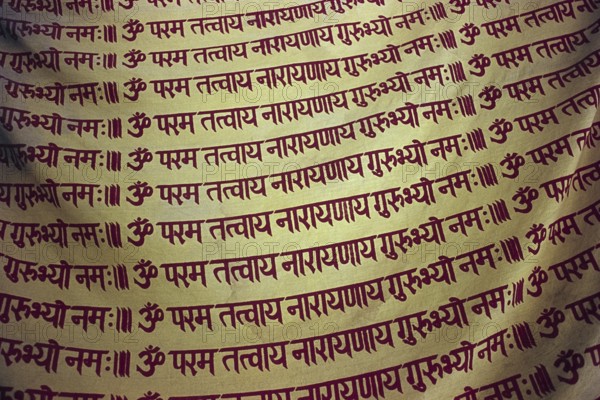 ॐ परम तत्वाय नारायणाय गुरुभ्यो नमः॥ ॐ परम
गुरुभ्यो नमः॥ ॐ परम तत्वाय नारायणाय गुरुभ्यो नमः॥ ॐ परम तत्वाय
गुरुभ्यो नमः॥ ॐ परम तत्वाय नारायणाय गुरुभ्यो नमः॥ ॐ परम तत्वाय
गुरुभ्यो नमः॥ ॐ परम तत्वाय नारायणाय गुरुभ्यो नमः॥ ॐ परम
गुरुभ्यो नमः॥ ॐ परम तत्वाय नारायणाय गुरुभ्यो नमः॥ ॐ परम
गुरुभ्यो नमः॥ ॐ परम तत्वाय नारायणाय गुरुभ्यो नमः॥ ॐ परम
गुरुभ्यो नमः॥ ॐ परम तत्वाय नारायणाय गुरुभ्यो नमः॥ ॐ परम
गुरुभ्यो नमः॥ ॐ परम तत्वाय नारायणाय गुरुभ्यो नमः॥ ॐ परम
गुरुभ्यो नमः॥ ॐ परम तत्वाय नारायणाय गुरुभ्यो नमः॥ ॐ
गुरुभ्यो नमः॥ ॐ परम तत्वाय नारायणाय गुरुभ्यो नमः॥ ॐ
ॐ परम तत्वाय नारायणाय गुरुभ्यो नमः॥ ॐ